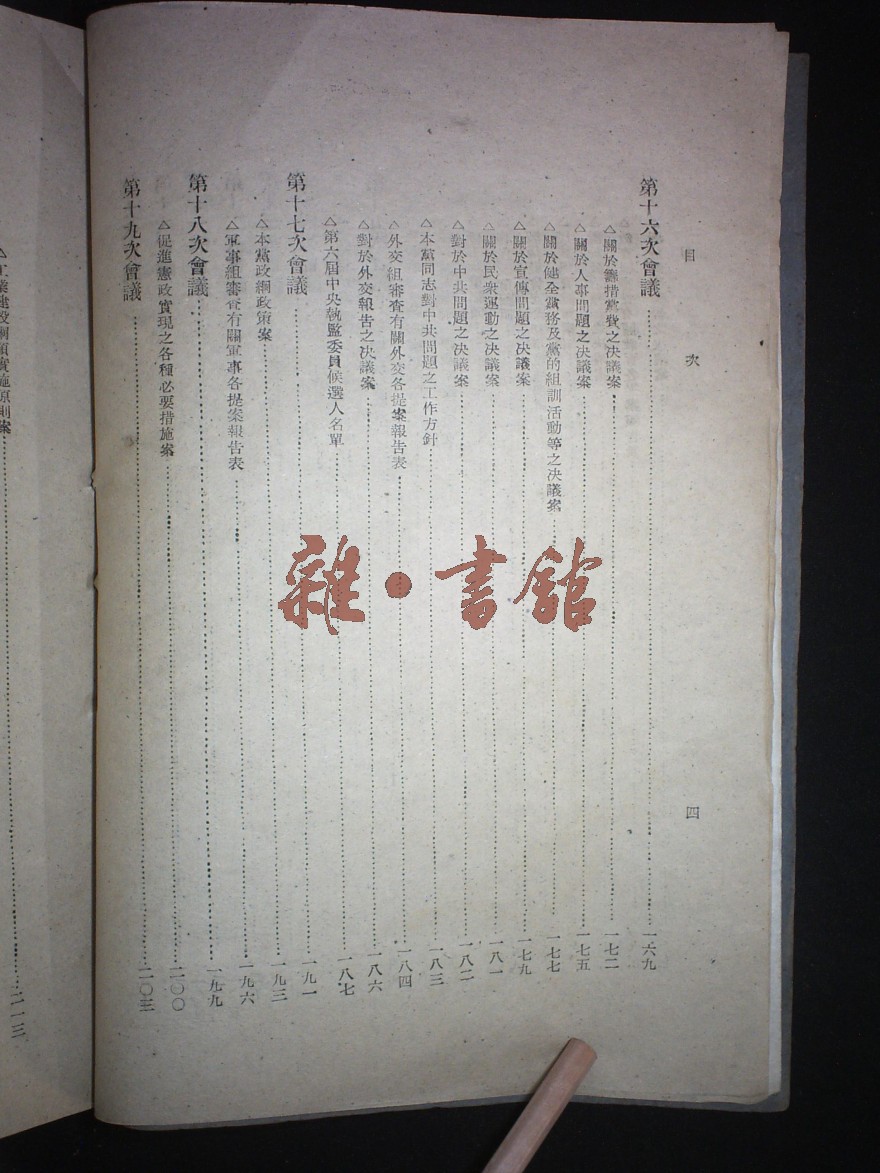 目次
四
第十六次會議……一六九
△關於籌措黨費之决議案……一七二
△關於人事問題之决議案……一七五
△關於健全黨務及黨的組訓活動等之决議案……一七七
△關於宣傳問題之决議案……一七九
△關於民衆運動之决議案……一八一
△對於中共問題之决議案……一八二
△本黨同志對中共問題之工作方針……一八三
△外交組審查有關外交各提案報告表……一八四
△對於外交報告之决議案……一八六
△第六屆中央執監委員候選人名單……一八七
第十七次會議……一九一
△本黨政綱政策案……一九三
△軍事組審查有關軍事各提案報告表……一九六
第十八次會議……一九九
△促進憲政實現之各種必要措施案……二〇〇
第十九次會議……二〇三
△工業建設綱領實施原則案……二一三
雜·書館